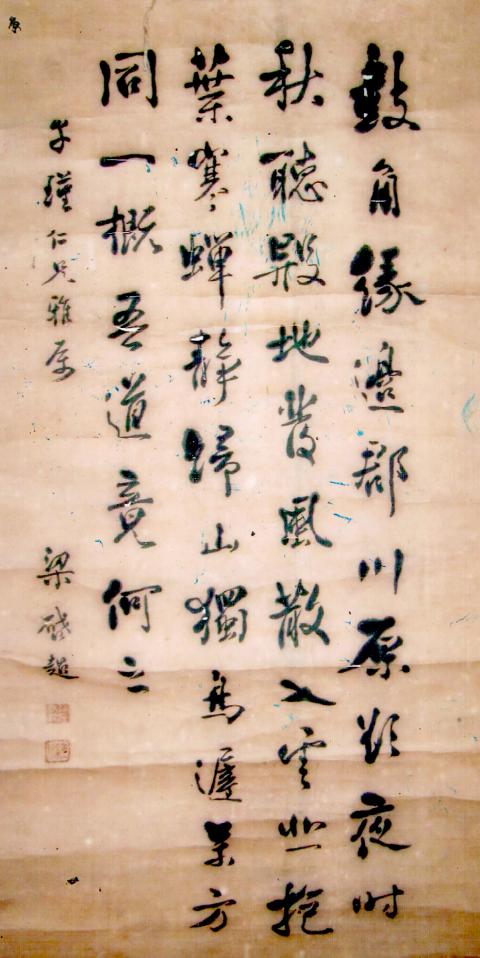 鼓角緣邊郡川原欲夜時
秋聽殷地發風散入雲悲抱
葉寒蟬靜歸山獨鳥遲萬方
同一概吾道竟何之
瑾仁兄雅屬
梁啟超